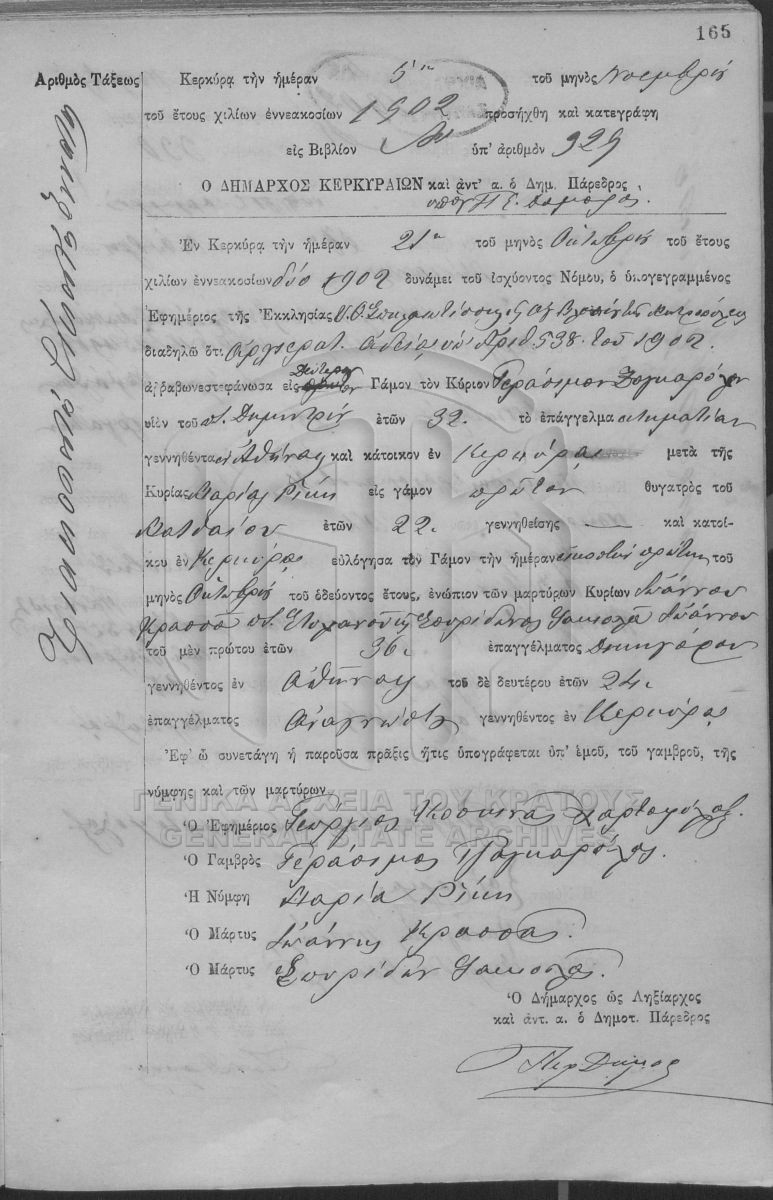 165
Ἀριθμὸς Τάξεως
Κερκύρᾳ τὴν ἡμέραν 5ῃ τοῦ μηνὸς Νοεμβρίου
τοῦ ἔτους χιλίων ἐννεακοσίων 1902 προσήχθη καὶ κατεγράφη
εἰς Βιβλίον ὑπ' ἀριθμὸν 929
Ὁ ΔΗΜΑΡΧΟΣ ΚΕΡΚΥΡΑΙΩΝ καὶ ἀντ' α. ὁ Δημ. Πάρεδρος
Ἐν Κερκύρᾳ τὴν ἡμέραν 21η τοῦ μηνὸς Ὀκτωβρίου τοῦ ἔτους
χιλίων ἐννεακοσίων δύο 1902 δυνάμει τοῦ ἰσχύοντος Νόμου, ὁ ὑπογεγραμμένος
Ἐφημέριος τῆς Ἐκκλησίας Μητροπόλεως
διαδηλῶ ὅτι Ἀρχιερατ. ἀδείᾳ ὑπ' Ἀριθ. 538. τοῦ 1902.
Δεύτερον
ἀρραβωνεστεφάνωσα εἰς Γάμον τὸν Κύριον Γεράσιμον
υἱὸν τοῦ π. Δημητρίου ἐτῶν 32. τὸ ἐπάγγελμα κτηματίαν
γεννηθέντα ἐν Ἀθήναις καὶ κάτοικον ἐν Κερκύρᾳ μετὰ τῆς
Κυρίας Μαρίας Ρίκη εἰς γάμον πρῶτον θυγατρὸς τοῦ
Ματθαίου ἐτῶν 22. γεννηθείσης — καὶ κατοί-
κου ἐν Κερκύρᾳ εὐλόγησα τὸν Γάμον τὴν ἡμέραν εἰκοστὴν πρώτην τοῦ
μηνὸς Ὀκτωβρίου τοῦ ὁδεύοντος ἔτους, ἐνώπιον τῶν μαρτύρων Κυρίων Ἰωάννου
Κρασσᾶ Σπυρίδωνος Ἰωάννου
τοῦ μὲν πρώτου ἐτῶν 36. ἐπαγγέλματος Δικηγόρου
γεννηθέντος ἐν Ἀθήναις τοῦ δὲ δευτέρου ἐτῶν 24.
ἐπαγγέλματος Ἀναγνώστου γεννηθέντος ἐν Κερκύρᾳ
Ἐφ' ᾧ συνετάγη ἡ παροῦσα πρᾶξις ἥτις ὑπογράφεται ὑπ' ἐμοῦ, τοῦ γαμβροῦ, τῆς
νύμφης καὶ τῶν μαρτύρων
ΓΕΝΙΚΑ ΑΡΧΕΙΑ ΤΟΥ ΚΡΑΤΟΥΣ
Ὁ Ἐφημέριος Γεώργιος Κοσκινᾶς Χαρτοφύλαξ.
GENERAL STATE ARCHIVES
Ὁ Γαμβρὸς Γεράσιμος
Ἡ Νύμφη Μαρία Ρίκη
Ὁ Μάρτυς Ἰωάννης Κρασσᾶς.
Ὁ Μάρτυς Σπυρίδων
Ὁ Δήμαρχος ὡς Ληξίαρχος
καὶ ἀντ. α. ὁ Δημοτ. Πάρεδρος